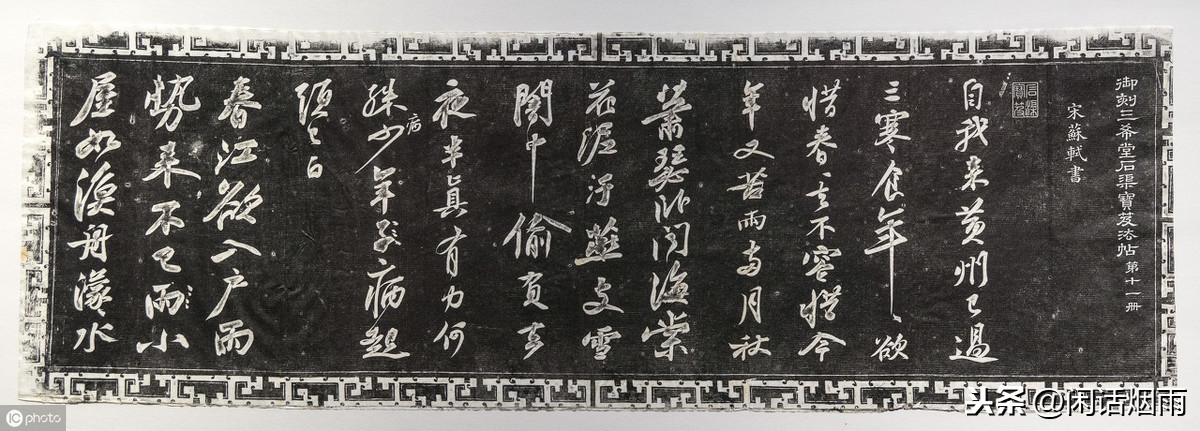 御刻三希堂石渠寶笈法帖 第十一冊
石渠寶笈
宋蘇軾書
自我来黄州已過
三寒食年〻欲
惜春〻去不容惜今
年又苦雨兩月秋
蕭瑟卧聞海棠
花泥汙燕支雪
闇中偷負去
夜半真有力何
殊病少年子病起
頭已白
春江欲入户雨
勢来不已雨小
屋如漁舟濛〻水
iC photo
头条 @闲话烟雨